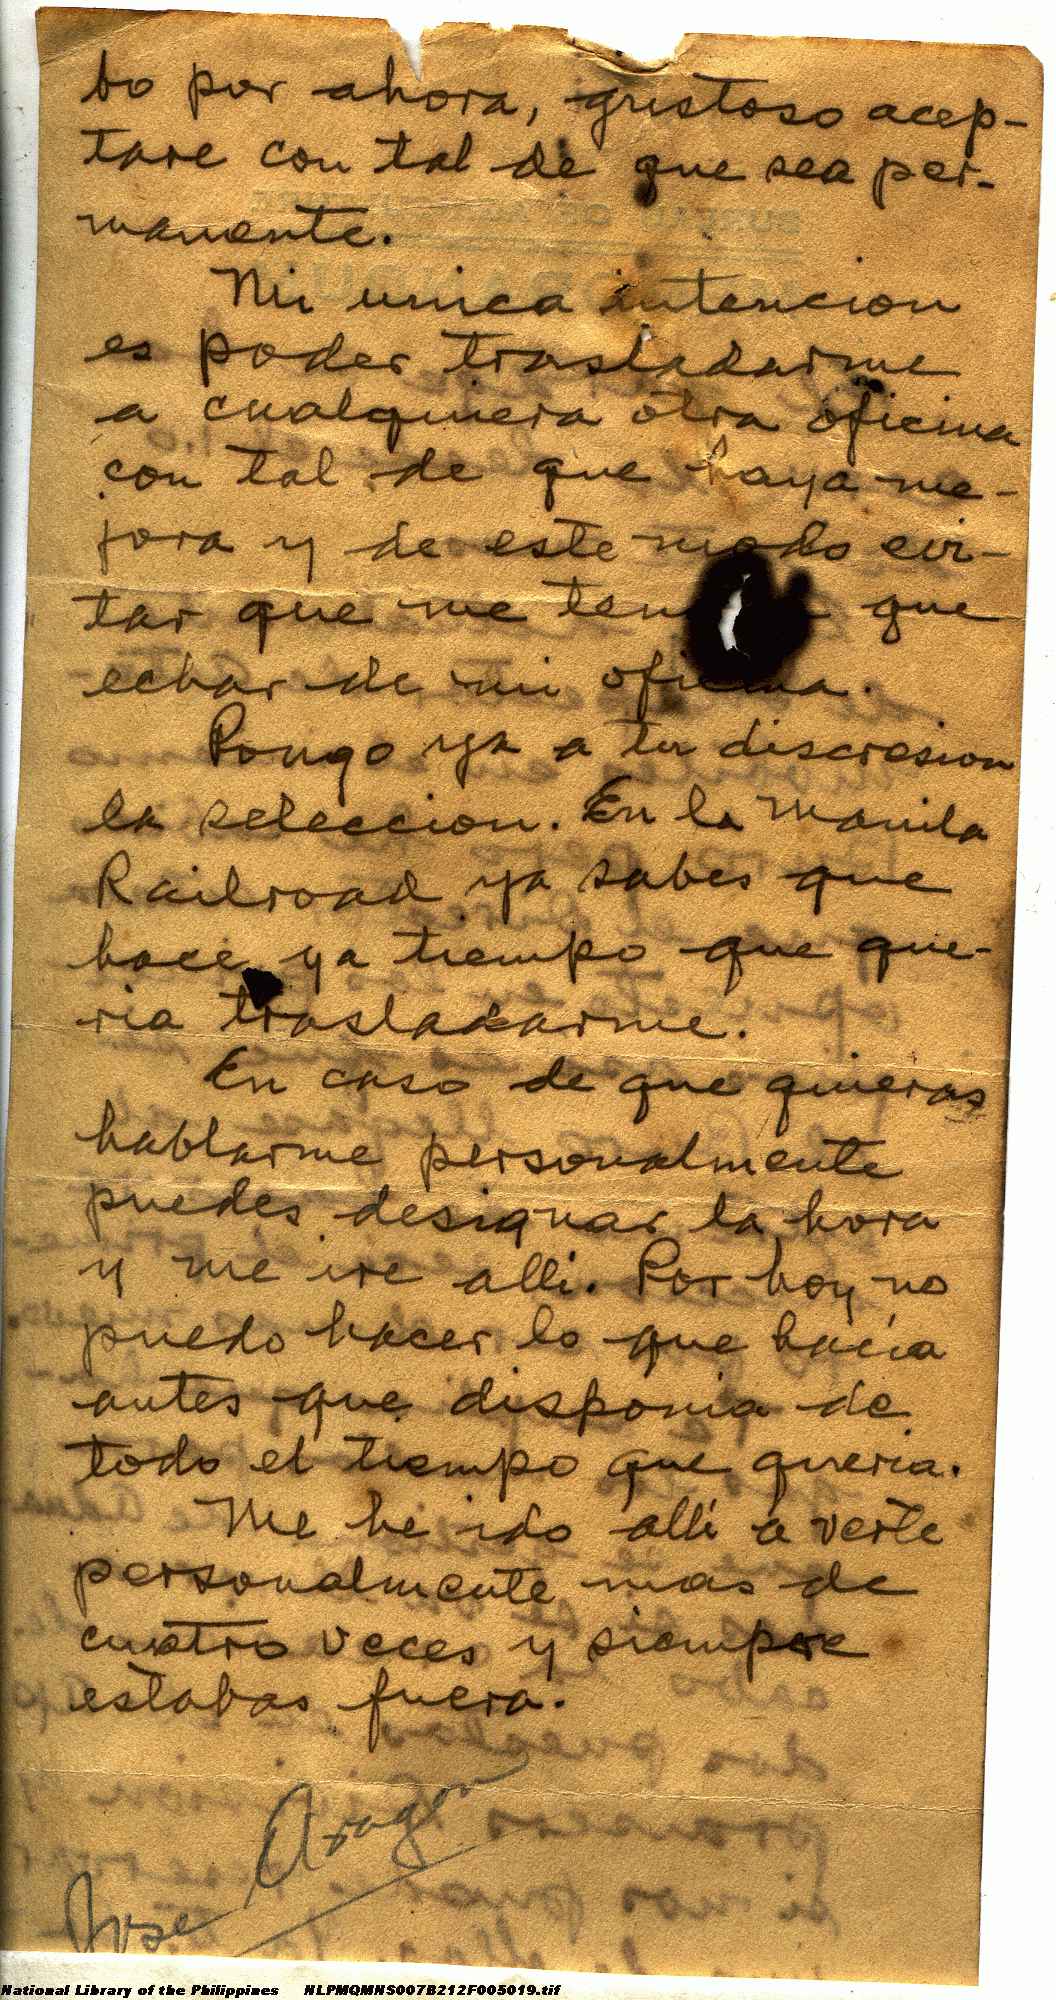 bo por ahora, gustoso acep-
tare con tal de que sea per-
manente.
Mi unica intencion
es poder trasladarme
a cualquiera otra oficina
con tal de que haya me-
jora y de este modo evi-
tar que me que
echar de mi oficina.
Pongo ya a tu discresion
la seleccion. En la Manila
Railroad ya sabes que
hace ya tiempo que que-
ria trasladarme.
En caso de que quieras
hablarme personalmente
puedes designar la hora
y me ire alli. Por hoy no
puedo hacer lo que hacia
antes que disponia de
todo el tiempo que queria.
Me he ido alli a verte
personalmente mas de
cuatro veces y siempre
estabas fuera.
Jose Aragon
National Library of the Philippines NLPMQMNS007B212F005019.tif